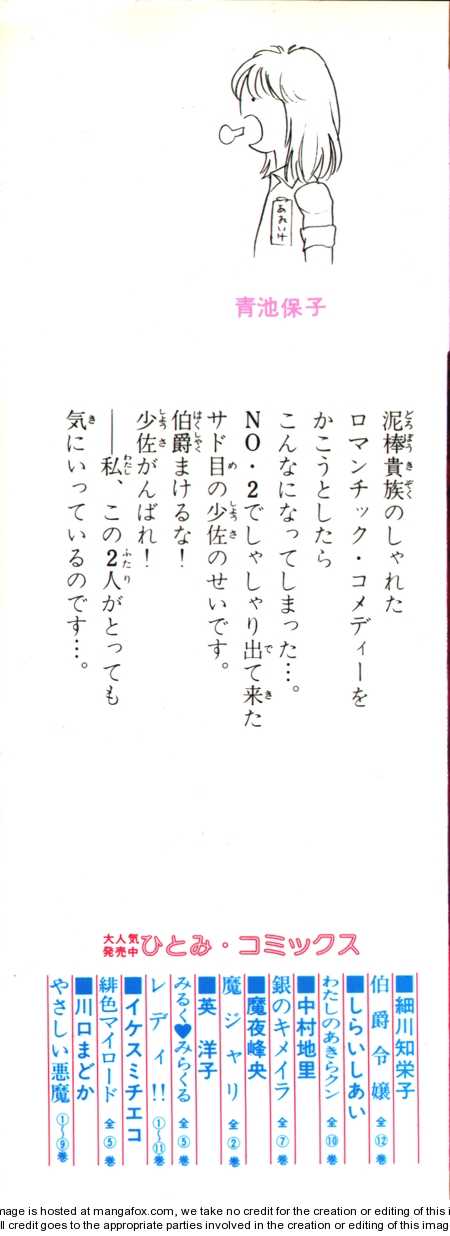 あおいけ
青池保子
泥棒貴族のしゃれた
ロマンチック・コメディーを
かこうとしたら
こんなになってしまった…。
NO・2でしゃしゃり出て来た
サド目の少佐のせいです。
伯爵まけるな!
少佐がんばれ!
――私、この2人がとっても
気にいっているのです…。
大人気
発売中
ひとみ・コミックス
■細川知栄子
伯爵令嬢 全⑫巻
■しらいしあい
わたしのあきらクン 全⑩巻
■中村地里
銀のキメイラ 全⑦巻
■魔夜峰央
魔ジャリ 全②巻
■英 洋子
みるく♥みらくる 全⑤巻
レディ!! ①〜⑪巻
■イケスミチエコ
緋色マイロード 全⑤巻
■川口まどか
やさしい悪魔 ①〜⑨巻
mage is hosted at mangafox.com, we take no credit for the creation or editing of this i
ll credit goes to the appropriate parties involved in the creation or editing of this image